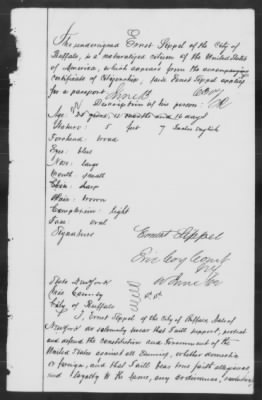 The undersigned Ernst Sippel of the City of
Buffalo, is a naturalized citizen of the United States
of America, which appears from the accompanying
certificate of Citizenship, said Ernst Sippel applies
for a passport
Description of his person:
Age: 25 years, 11 months and 16 days
Stature: 5 feet 7 Inches English
Forehead: broad
Eyes: blue
Nose: large
Mouth: small
Chin: sharp
Hair: brown
Complexion: light
Face: oval
Signature
Ernst Sippel
Erie County
State New York
Erie County s.s.
City of Buffalo
I, Ernst Sippel of the City of Buffalo, State of
New York do solemnly swear that I will support, protect
and defend the constitution and Government of the
United States against all Enemies, whether domestic
or foreign, and that I will bear true faith allegiance
and loyalty to the same, any ordinance, resolution